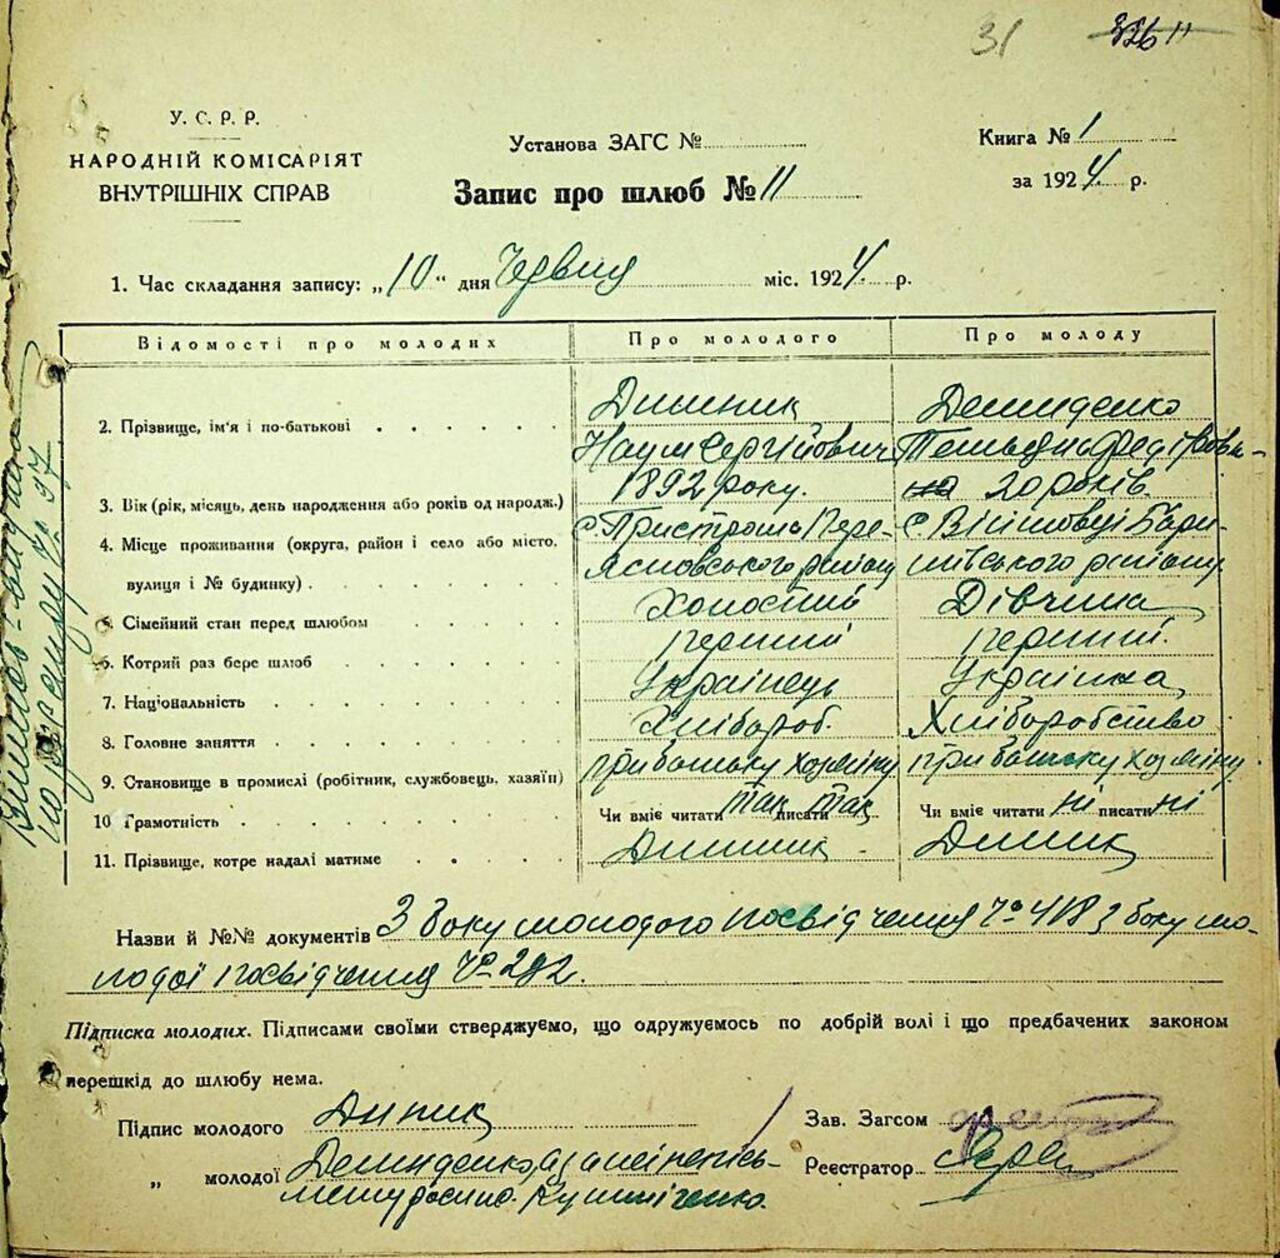 31
У. С. Р. Р.
НАРОДНІЙ КОМІСАРІЯТ
ВНУТРІШНІХ СПРАВ
Установа ЗАГС №
Запис про шлюб № 11
Книга № 1
за 1924 р.
1. Час складання запису: „10“ дня Червня міс. 1924 р.
Відомості про молодих Про молодого Про молоду
2. Прізвище, ім'я і по-батькові
Наум Сергійович
Демиденко
Тетьяна Федіровна
3. Вік (рік, місяць, день народження або років од народж.) 1892 року. 20 років.
4. Місце проживання (округа, район і село або місто, с. Пристроми Пере- с.
вулиця і № будинку) яславського району шівського району
5. Сімейний стан перед шлюбом Холостий Дівчина
6. Котрий раз бере шлюб перший перший.
7. Національність Українець Українка
8. Головне заняття Хлібороб. Хліборобство
9. Становище в промислі (робітник, службовець, хазяїн) при батьку хозяїну при батьку хозяїну
10 Грамотність Чи вміє читати так писати так Чи вміє читати ні писати ні
11. Прізвище, котре надалі матиме
Назви й №№ документів З боку молодого посвідчення № 418 з боку мо-
лодої посвідчення № 282.
Підписка молодих. Підписами своїми стверджуємо, що одружуємось по добрій волі і що предбачених законом
перешкід до шлюбу нема.
Підпис молодого
Зав. Загсом
„ молодої Демиденко, а за неї непись-
менну
Реєстратор